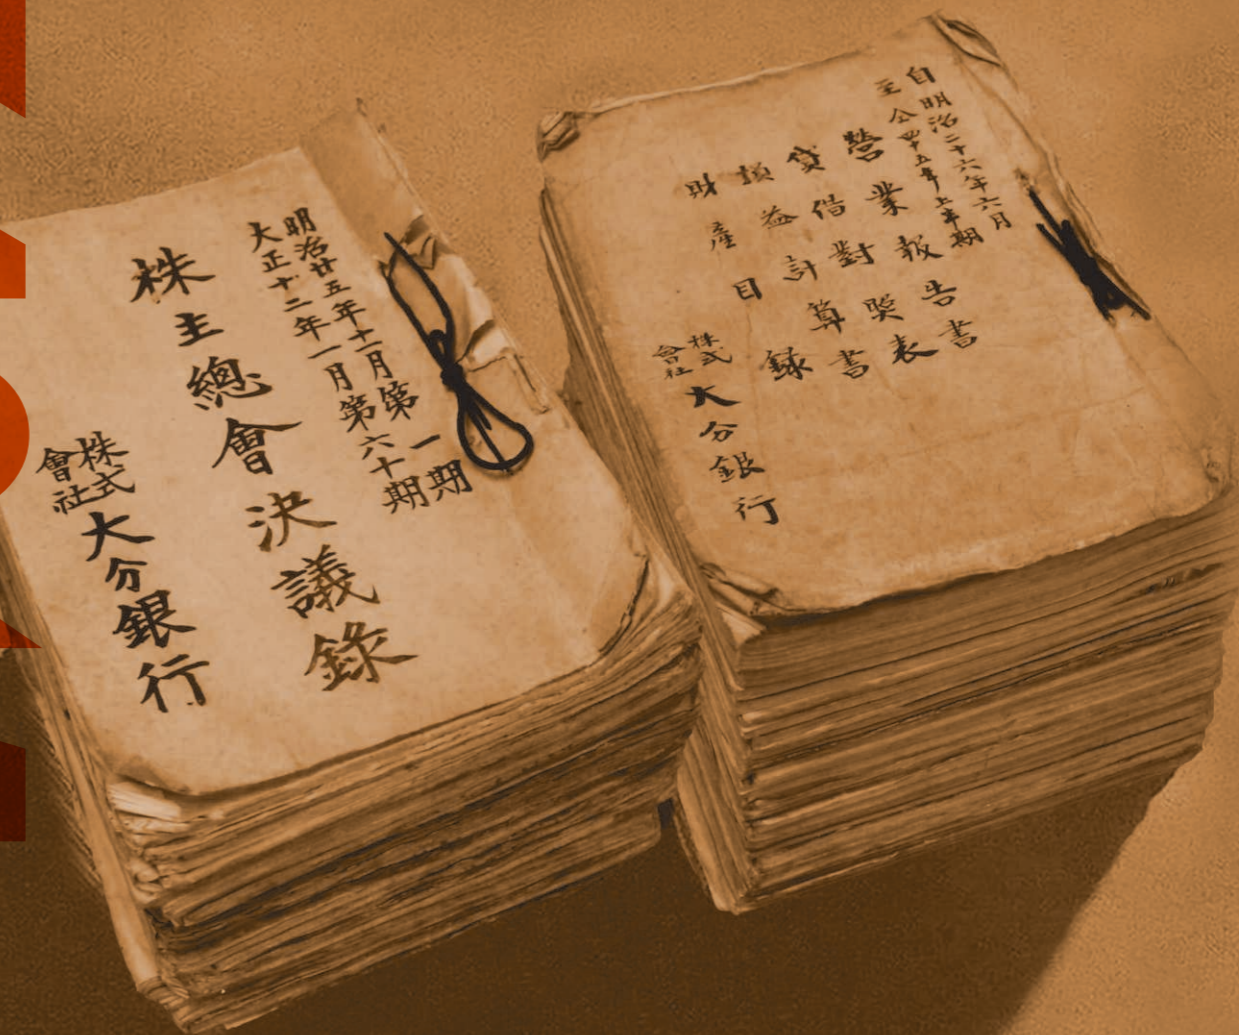 明治廿五年十二月第一期
大正十二年一月第六十期
株主總會決議錄
株式
會社
大分銀行
自明治二十六年六月
至仝四十五年上半期
營業報告書
貸借對照表
損益計算書
財產目錄
株式
會社
大分銀行